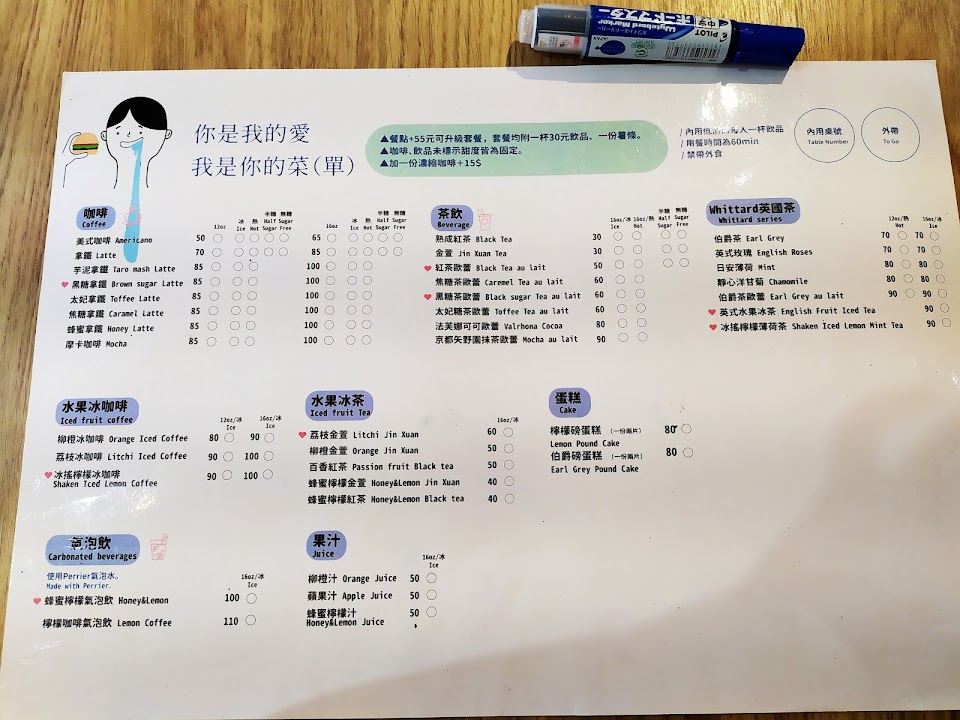 PILOT
ボードマスター
Whytebord Marker
中字
JAPAN
你是我的愛
我是你的菜(單)
▲餐點+55元可升級套餐，套餐均附一杯30元飲品、一份薯條。
▲咖啡、飲品未標示甜度皆為固定。
▲加一份濃縮咖啡+15$
/用餐時間為60min
/禁帶外食
內用桌號
Table Number
外帶
To Go
咖啡
Coffee
12oz 冰 Ice 熱 Hot 半糖 Half Sugar 無糖 Sugar Free 16oz 冰 Ice 熱 Hot 半糖 Half Sugar 無糖 Sugar Free
美式咖啡 Americano 50 65
拿鐵 Latte 70 85
芋泥拿鐵 Taro mash Latte 85 100
黑糖拿鐵 Brown sugar Latte 85 100
太妃拿鐵 Toffee Latte 85 100
焦糖拿鐵 Caramel Latte 85 100
蜂蜜拿鐵 Honey Latte 85 100
摩卡咖啡 Mocha 85 100
茶飲
Beverage
16oz/冰 Ice 16oz/熱 Hot 半糖 Half Sugar 無糖 Sugar Free
熟成紅茶 Black Tea 30
金萱 Jin Xuan Tea 30
紅茶歐蕾 Black Tea au lait 50
焦糖茶歐蕾 Caremel Tea au lait 60
黑糖茶歐蕾 Black sugar Tea au lait 60
太妃糖茶歐蕾 Toffee Tea au lait 60
法芙娜可可歐蕾 Valrhona Cocoa 80
京都矢野園抹茶歐蕾 Mocha au lait 90
Whittard英國茶
Whittard series
12oz/熱 Hot 16oz/冰 Ice
伯爵茶 Earl Grey 70 70
英式玫瑰 English Roses 70 70
日安薄荷 Mint 80 80
靜心洋甘菊 Chamomile 80 80
伯爵茶歐蕾 Earl Grey au lait 90 90
英式水果冰茶 English Fruit Iced Tea 90
冰搖檸檬薄荷茶 Shaken Iced Lemon Mint Tea 90
水果冰咖啡
Iced fruit coffee
12oz/冰 Ice 16oz/冰 Ice
柳橙冰咖啡 Orange Iced Coffee 80 90
荔枝冰咖啡 Litchi Iced Coffee 90 100
冰搖檸檬冰咖啡 90 100
Shaken Iced Lemon Coffee
水果冰茶
Iced fruit Tea
16oz/冰 Ice
荔枝金萱 Litchi Jin Xuan 60
柳橙金萱 Orange Jin Xuan 50
百香紅茶 Passion fruit Black tea 50
蜂蜜檸檬金萱 Honey&Lemon Jin Xuan 40
蜂蜜檸檬紅茶 Honey&Lemon Black tea 40
蛋糕
Cake
檸檬磅蛋糕 (一份兩片) 80
Lemon Pound Cake
伯爵磅蛋糕 (一份兩片) 80
Earl Grey Pound Cake
氣泡飲
Carbonated beverages
使用Perrier氣泡水。
Made with Perrier.
16oz/冰 Ice
蜂蜜檸檬氣泡飲 Honey&Lemon 100
檸檬咖啡氣泡飲 Lemon Coffee 110
果汁
Juice
16oz/冰 Ice
柳橙汁 Orange Juice 50
蘋果汁 Apple Juice 50
蜂蜜檸檬汁 50
Honey&Lemon Juice